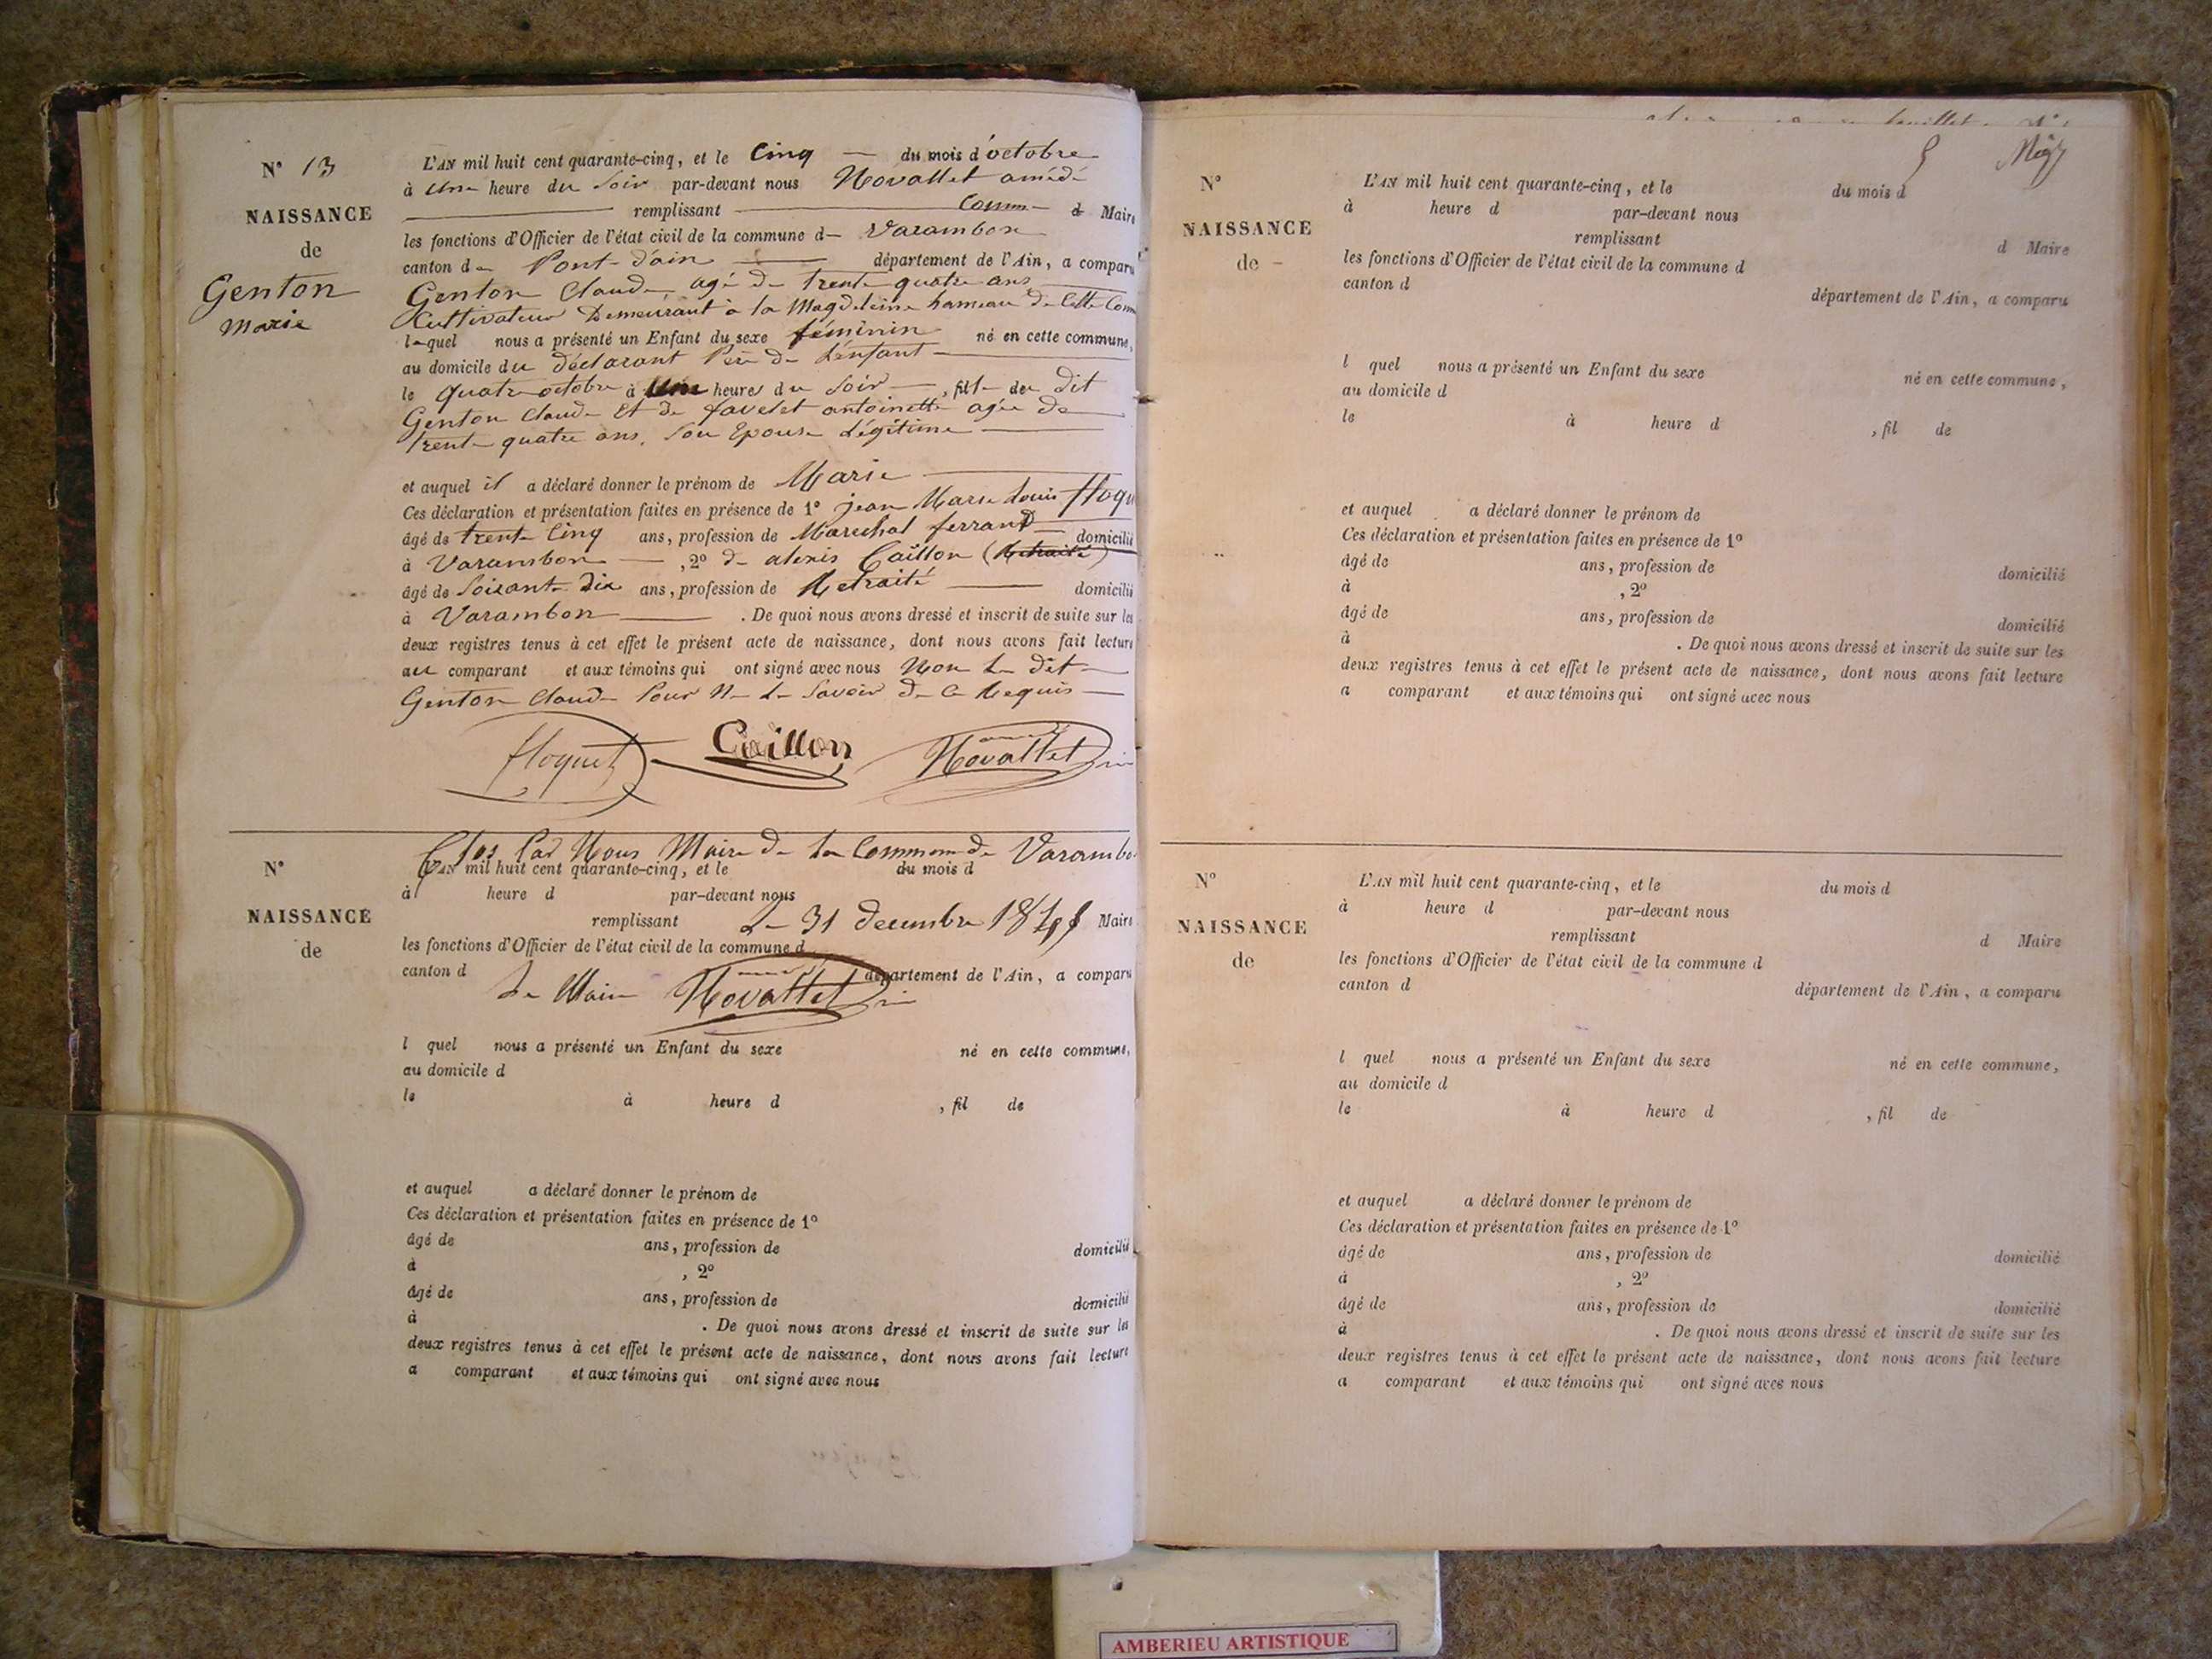 N° 13
NAISSANCE
de
Genton
Marie
L'AN mil huit cent quarante-cinq, et le Cinq — du mois d'octobre
à une heure du Soir par-devant nous Novallet amédé
remplissant d Maire
les fonctions d'Officier de l'état civil de la commune d— Varambon
canton de Pont-d'ain — département de l'Ain, a comparu
Genton Claude, agé de trente quatre ans
Cultivateur Demeurant à la Magdeleine hameau de Cette Com
lequel nous a présenté un Enfant du sexe féminin né en cette commune,
au domicile du déclarant Père de L'enfant —
le quatre octobre à Une heures du Soir —, fille du Dit
Genton Claude Et de favelet antoinette agée de
trente quatre ans, Son Epouse Légitime —
et auquel il a déclaré donner le prénom de Marie —
Ces déclaration et présentation faites en présence de 1° jean Marie Louis floqu
âgé de trente Cinq ans, profession de Marechal ferrand — domicilié
à Varambon —, 2° de alexis Caillon (Retraité)
âgé de Soixante Dix ans, profession de Retraité — domicilié
à Varambon — . De quoi nous avons dressé et inscrit de suite sur les
deux registres tenus à cet effet le présent acte de naissance, dont nous avons fait lecture
au comparant et aux témoins qui ont signé avec nous Non Le dit —
Genton Claude Pour Ne Le Savoir De Ce Requis —
floquet Caillon Novallet
Clos Par Nous Maire De La Commune De Varambo
N°
NAISSANCE
de
L'AN mil huit cent quarante-cinq, et le du mois d
à heure d par-devant nous
remplissant Le 31 decembre 1845 Maire
les fonctions d'Officier de l'état civil de la commune d
canton d département de l'Ain, a comparu
Le Maire Novallet
l quel nous a présenté un Enfant du sexe né en cette commune,
au domicile d
le à heure d , fil de
et auquel a déclaré donner le prénom de
Ces déclaration et présentation faites en présence de 1°
âgé de ans, profession de domicilié
à , 2°
âgé de ans, profession de domicilié
à . De quoi nous avons dressé et inscrit de suite sur les
deux registres tenus à cet effet le présent acte de naissance, dont nous avons fait lecture
a comparant et aux témoins qui ont signé avec nous
N°
NAISSANCE
de
L'AN mil huit cent quarante-cinq, et le du mois d
à heure d par-devant nous
remplissant d Maire
les fonctions d'Officier de l'état civil de la commune d
canton d département de l'Ain, a comparu
l quel nous a présenté un Enfant du sexe né en cette commune,
au domicile d
le à heure d , fil de
et auquel a déclaré donner le prénom de
Ces déclaration et présentation faites en présence de 1°
âgé de ans, profession de domicilié
à , 2°
âgé de ans, profession de domicilié
à . De quoi nous avons dressé et inscrit de suite sur les
deux registres tenus à cet effet le présent acte de naissance, dont nous avons fait lecture
a comparant et aux témoins qui ont signé avec nous
N°
NAISSANCE
de
L'AN mil huit cent quarante-cinq, et le du mois d
à heure d par-devant nous
remplissant d Maire
les fonctions d'Officier de l'état civil de la commune d
canton d département de l'Ain, a comparu
l quel nous a présenté un Enfant du sexe né en cette commune,
au domicile d
le à heure d , fil de
et auquel a déclaré donner le prénom de
Ces déclaration et présentation faites en présence de 1°
âgé de ans, profession de domicilié
à , 2°
âgé de ans, profession de domicilié
à . De quoi nous avons dressé et inscrit de suite sur les
deux registres tenus à cet effet le présent acte de naissance, dont nous avons fait lecture
a comparant et aux témoins qui ont signé avec nous
AMBERIEU ARTISTIQUE